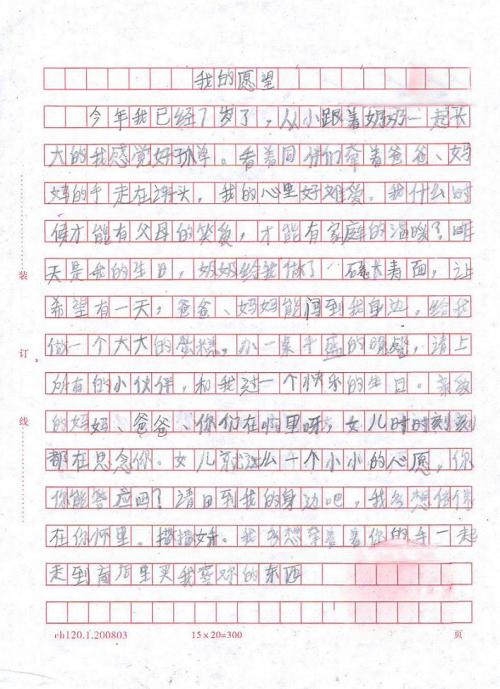 我的愿望
今年我已经7岁了，从小跟着奶奶一起长
大的我感觉好孤单。看着同伴们牵着爸爸、妈
妈的手走在街头，我的心里好难受。我什么时
候才能有父母的笑，才能有家庭的温暖？昨
天是我的生日，奶奶给我做了一碗长寿面，
希望有一天，爸爸、妈妈能回到我身边，给我
做一个大大的蛋糕，办一桌丰盛的晚餐，请上
所有的小伙伴，和我过一个快乐的生日。亲
的妈妈、爸爸、你们在哪里呀，女儿时时刻刻
都在思念你。女儿就这么一个小小的心愿，你
你能答应吗？请回到我的身边吧，我多想
在你怀里。我多想牵着你的手一起
走到商场里买我喜欢的东西
装
订
线
ch120.1.200803
15×20=300
页